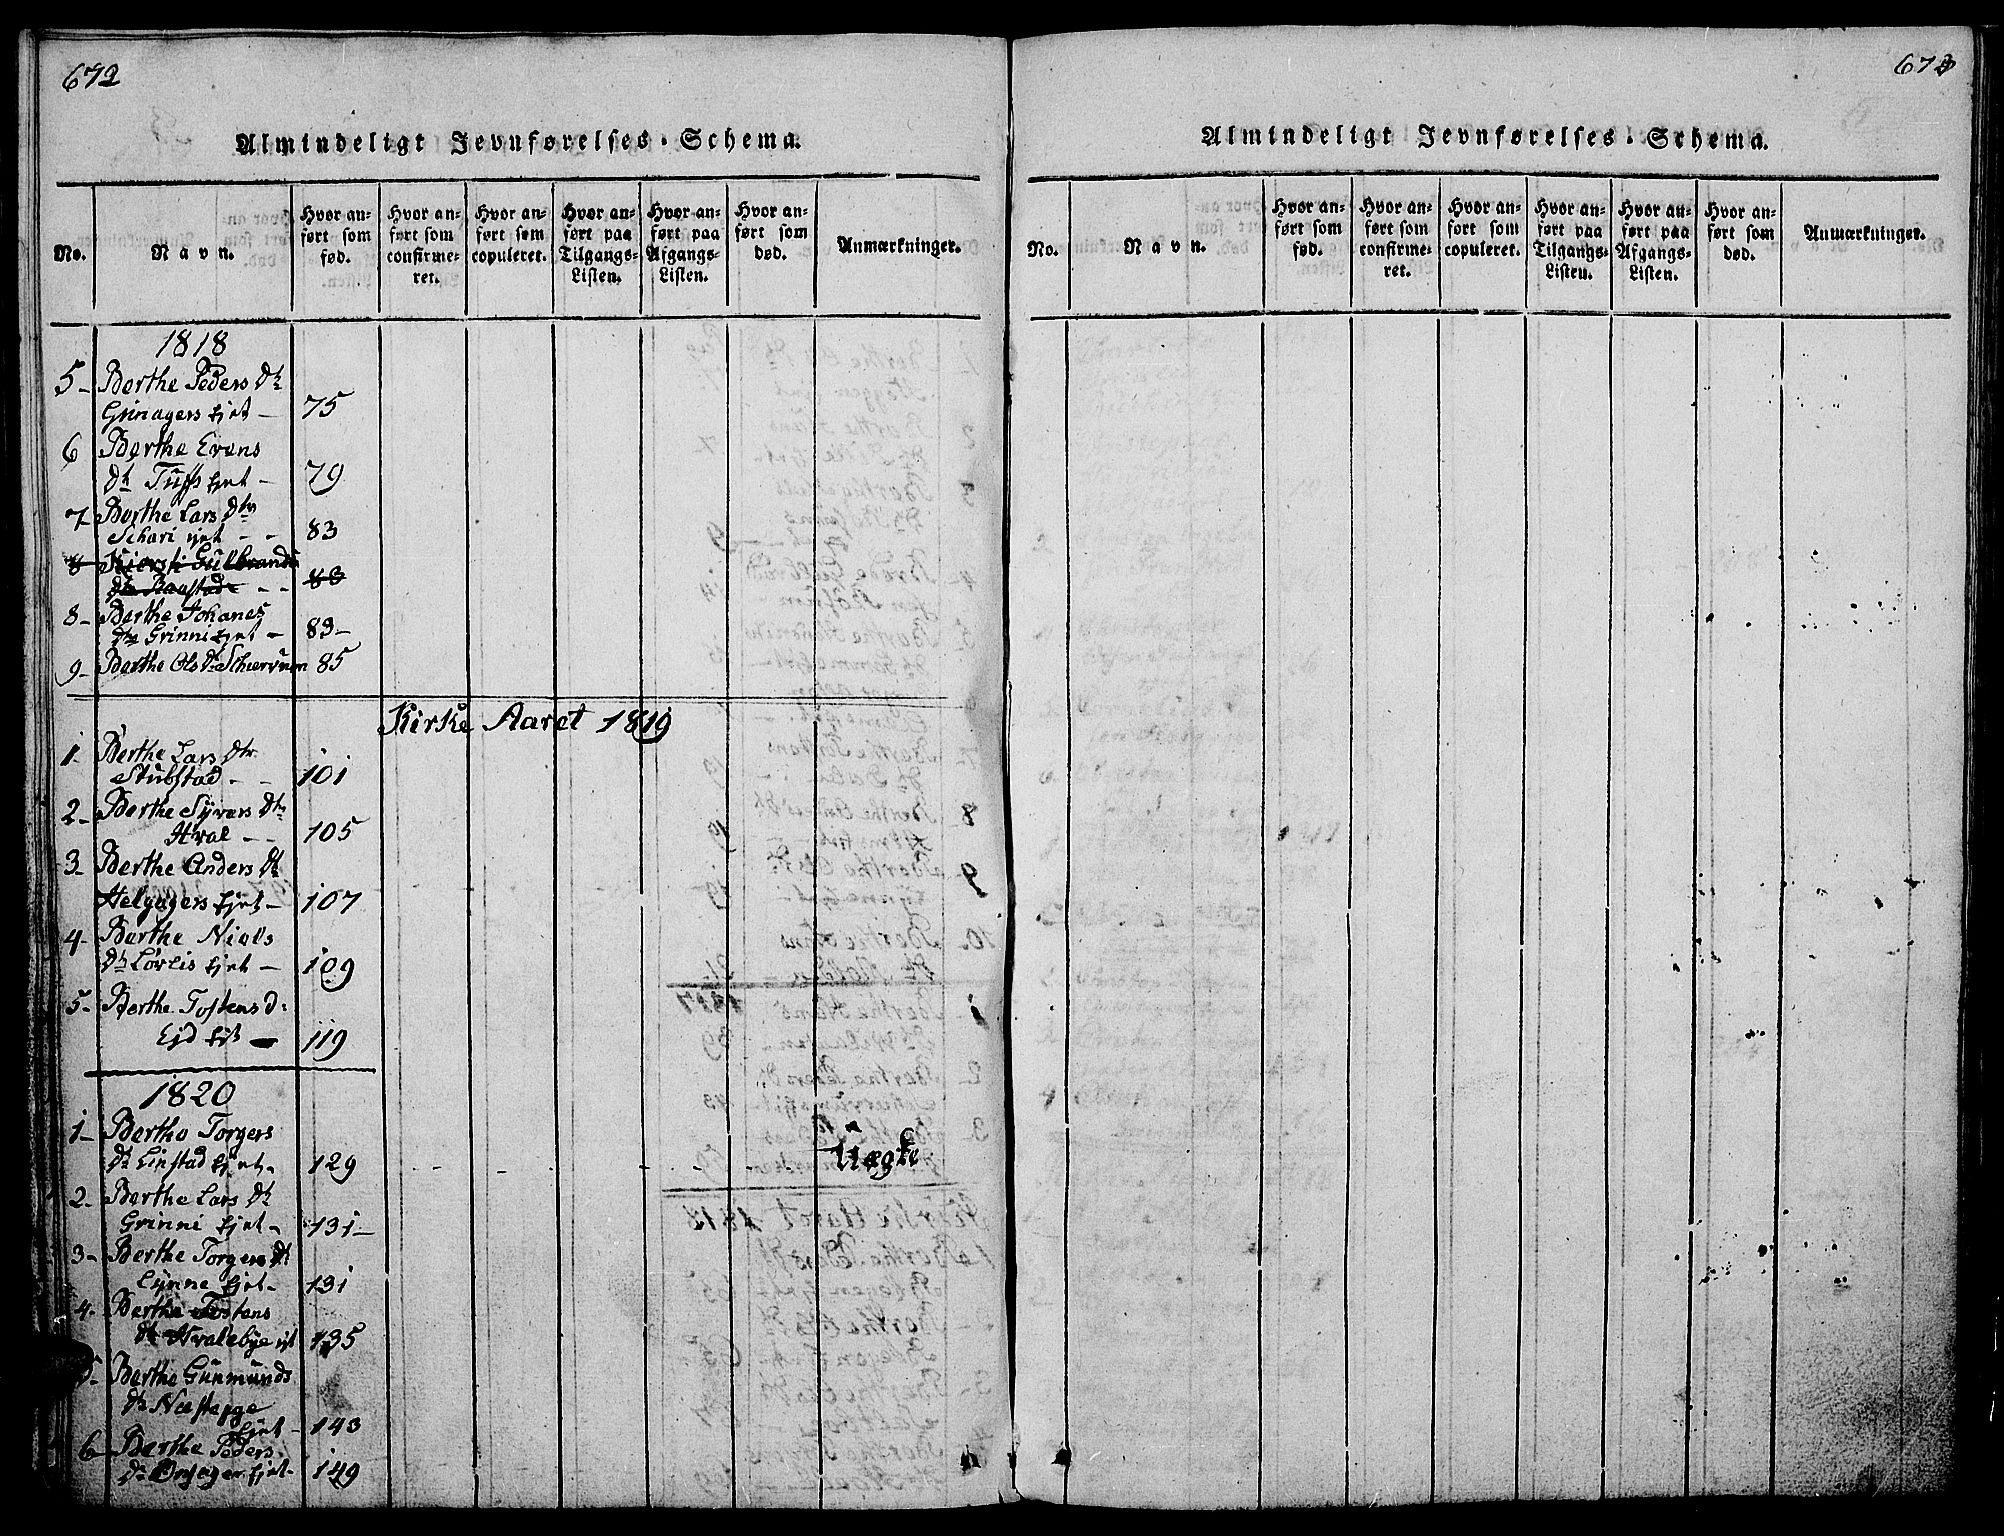 672
Almindeligt Jevnførelses-Schema.
No.
Navn.
Hvor anført som fød.
Hvor anført som confirmeret.
Hvor anført som copuleret.
Hvor anført paa Tilgangs-Listen.
Hvor anført paa Afgangs-Listen.
Hvor anført som død.
Anmærkninger.
1818
5- Berthe Peders Dtr
Grinagers Ejet - 75
6 Berthe Evens
Dtr Tufs Ejet - 79
7- Berthe Lars Dtr
Schari ejet - - 83
8 Kiersti Gulbrands
Dtr Raastad - - 83
8- Berthe Johanes
Dtr Grinni Ejet - 83-
9- Berthe Ols Dr Schiervum 85
Kirke Aaret 1819
1- Berthe Lars Dtr
Stubstad - - 101
2- Berthe Syvers Dtr
Hval - - 105
3- Berthe Anders Dtr
Helgagers Ejet - 107
4- Berthe Niels
Dtr Lørlis Ejet - 109
5- Berthe Tostens D:
Ejd Ejt - 119
1820
1- Berthe Torgers
Dtr Linstad Ejet- 129 Uægte
2- Berthe Lars Dtr
Grinni Ejet - 131-
3- Berthe Torgers Dtr
Lynne Ejet- 131
4- Berthe Tostens
Dtr Hvalebye ejt 135
5- Berthe Gunmunds
Dtr Næstegge
Ejet - 143
6- Berthe Peders
Dr Ejet- 149
673
Almindeligt Jevnførelses-Schema.
No.
Navn.
Hvor anført som fød.
Hvor anført som confirmeret.
Hvor anført som copuleret.
Hvor anført paa Tilgangs-Listen.
Hvor anført paa Afgangs-Listen.
Hvor anført som død.
Anmærkninger.